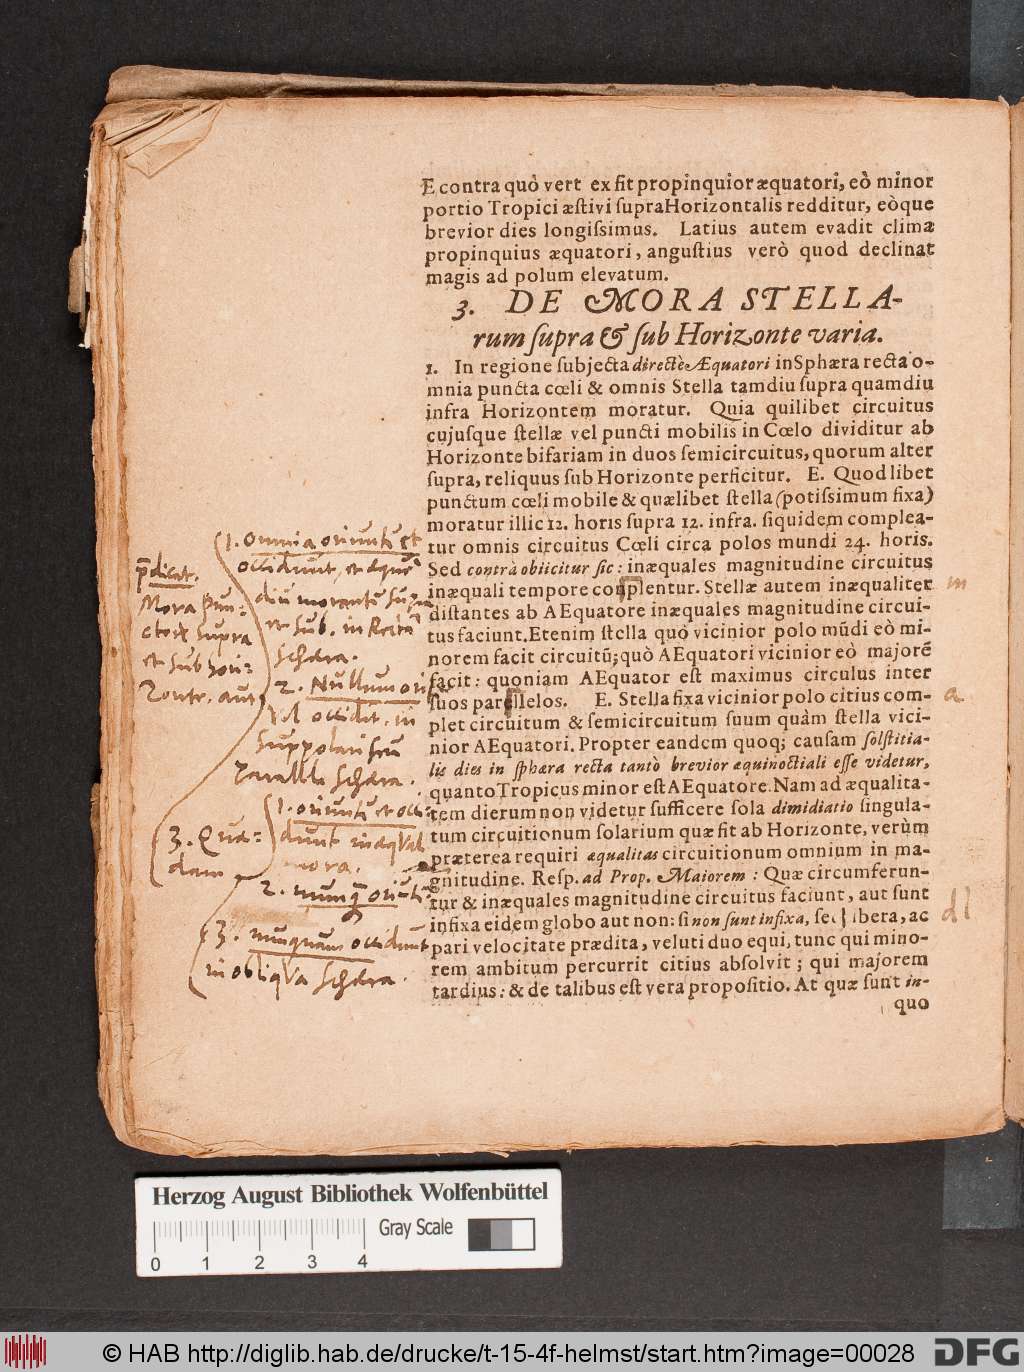 E contra quò vert ex fit propinquior æquatori, eò minor
portio Tropici æstivi supra Horizontalis redditur, eòque
brevior dies longissimus. Latius autem evadit clima
propinquius æquatori, angustius verò quod declinat
magis ad polum elevatum.
3. DE MORA STELLA-
rum supra & sub Horizonte varia.
1. In regione subjecta directè Æquatori in Sphæra recta o-
mnia puncta cœli & omnis Stella tamdiu supra quamdiu
infra Horizontem moratur. Quia quilibet circuitus
cujusque stellæ vel puncti mobilis in Cœlo dividitur ab
Horizonte bifariam in duos semicircuitus, quorum alter
supra, reliquus sub Horizonte perficitur. E. Quodlibet
punctum cœli mobile & quælibet stella (potissimum fixa)
moratur illic 12. horis supra 12. infra. siquidem complea-
tur omnis circuitus Cœli circa polos mundi 24. horis.
Sed contrà obiicitur sic: inæquales magnitudine circuitus
inæquali tempore conplentur. Stellæ autem inæqualiter
distantes ab AEquatore inæquales magnitudine circui-
tus faciunt. Etenim stella quò vicinior polo mūdi eò mi-
norem facit circuitū; quò AEquatori vicinior eò majorē
facit: quoniam AEquator est maximus circulus inter
suos parellelos. E. Stella fixa vicinior polo citius com-
plet circuitum & semicircuitum suum quàm stella vici-
nior AEquatori. Propter eandem quoq; causam solstitia-
lis dies in sphæra recta tantò brevior æquinoctiali esse videtur,
quanto Tropicus minor est AEquatore. Nam ad æqualita-
tem dierum non videtur sufficere sola dimidiatio singula-
tum circuitionum solarium quæ fit ab Horizonte, verùm
præterea requiri æqualitas circuitionum omnium in ma-
gnitudine. Resp. ad Prop. Maiorem: Quæ circumferun-
tur & inæquales magnitudine circuitus faciunt, aut sunt
infixa eidem globo aut non: si non sunt infixa, sed libera, ac
pari velocitate prædita, veluti duo equi, tunc qui mino-
rem ambitum percurrit citius absolvit; qui majorem
tardius: & de talibus est vera propositio. At quæ sunt in-
quo
m
a
dl
p̄dicat.
Mora pun-
ctorū supra
et sub hori-
zonte. aut
1. Omnia oriuntur et
occidunt, et æque
diu morantur supra
et sub. in Recta
sphæra.
2. Nullum ori
vel occidit. in
suppolari seu
parallela sphæra.
3. Quæ-
dam
1. oriuntur et occi-
dunt inæquali
mora.
2. nunq̄ oriuntur
3. nunquam occidunt
in obliqua sphæra.
Herzog August Bibliothek Wolfenbüttel
Gray Scale
0 1 2 3 4
© HAB http://diglib.hab.de/drucke/t-15-4f-helmst/start.htm?image=00028
DFG